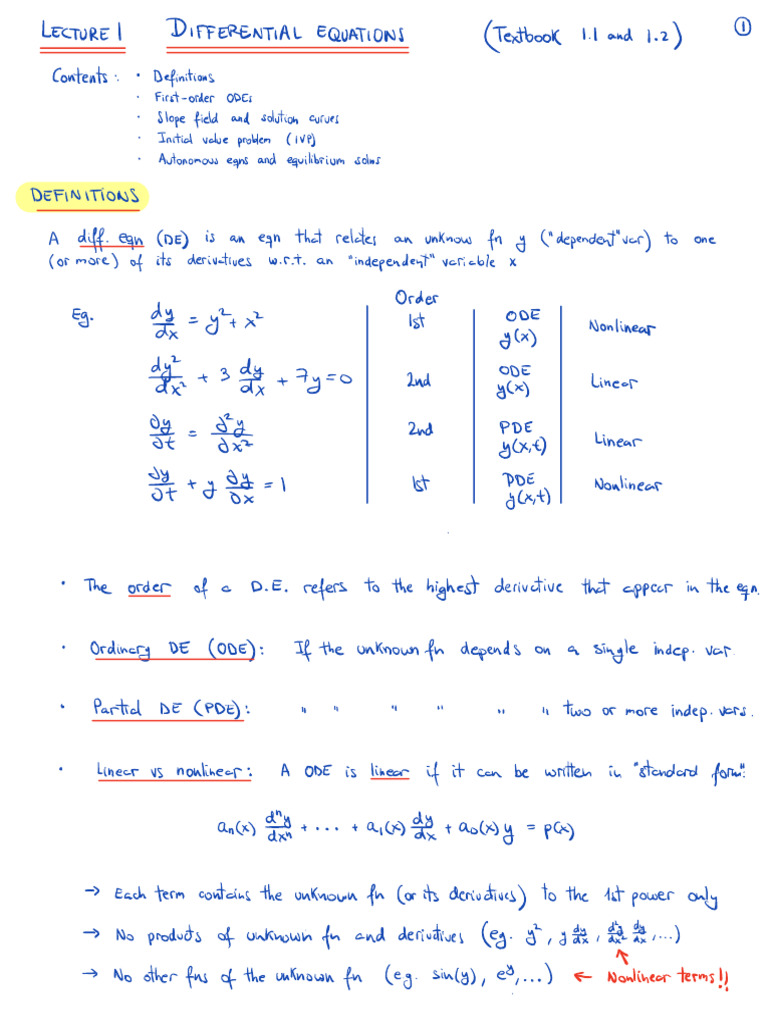 LECTURE 1 DIFFERENTIAL EQUATIONS (Textbook 1.1 and 1.2) ①
Contents: • Definitions
• First-order ODEs
• Slope field and solution curves
• Initial value problem (IVP)
• Autonomous eqns and equilibrium solns
DEFINITIONS
A diff. eqn (DE) is an eqn that relates an unknow fn y ("dependent" var) to one
(or more) of its derivatives w.r.t. an "independent" variable x
Order
Eg. dy/dx = y² + x² 1st ODE y(x) Nonlinear
dy²/dx² + 3 dy/dx + 7y = 0 2nd ODE y(x) Linear
∂y/∂t = ∂²y/∂x² 2nd PDE y(x,t) Linear
∂y/∂t + y ∂y/∂x = 1 1st PDE y(x,t) Nonlinear
• The order of a D.E. refers to the highest derivative that appear in the eqn.
• Ordinary DE (ODE): If the unknown fn depends on a single indep. var.
• Partial DE (PDE): " " " " " " two or more indep. vars.
• Linear vs nonlinear: A ODE is linear if it can be written in "standard form":
aₙ(x) dⁿy/dxⁿ + ... + a₁(x) dy/dx + a₀(x) y = p(x)
→ Each term contains the unknown fn (or its derivatives) to the 1st power only
→ No products of unknown fn and derivatives (eg. y², y dy/dx, d²y/dx² dy/dx, ...)
→ No other fns of the unknown fn (e.g. sin(y), e^y, ...) ← Nonlinear terms!!